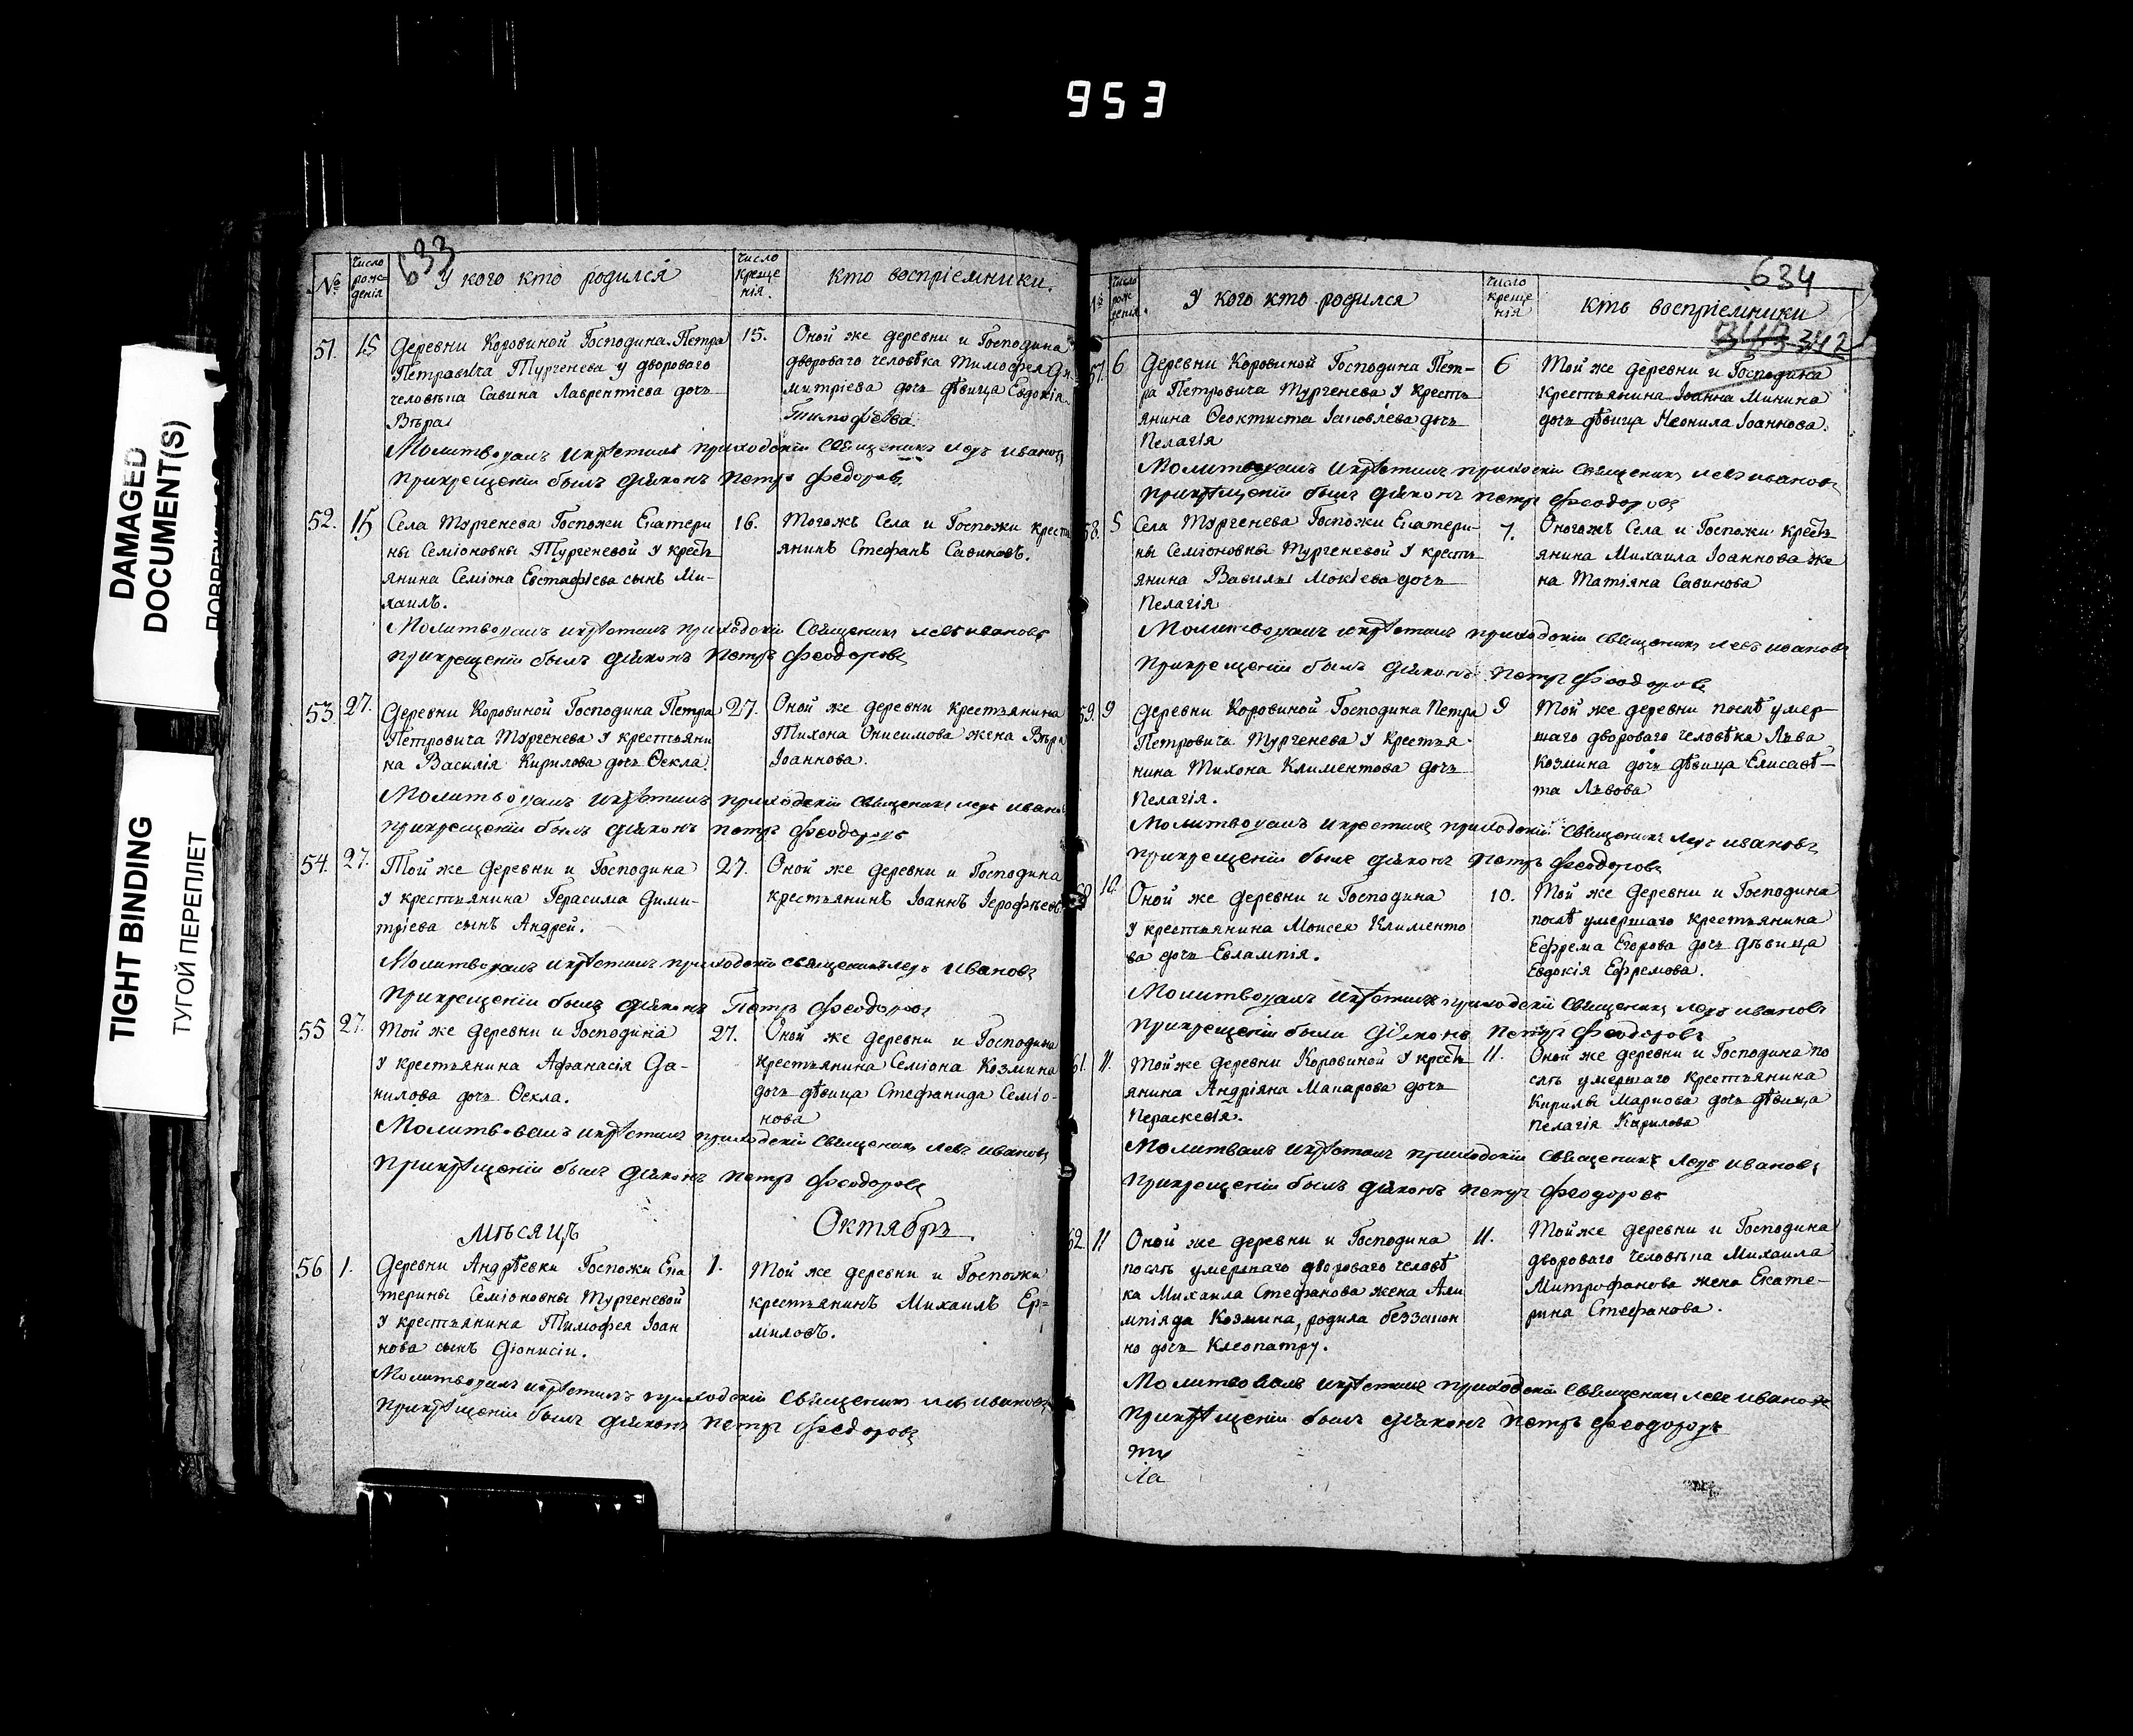 953
DAMAGED
DOCUMENT(S)
TIGHT BINDING
ТУГОЙ ПЕРЕПЛЕТ
633
№
число рож-денія
У кого кто родился
число креще нія.
кто воспріемники.
51. 15
Деревни Коровиной Господина Петра
Петровича Тургенева у двороваго
человѣка Савина Лаврентіева дочь
Вѣра
15.
Оной же деревни и Господина
двороваго человѣка Тимофея Ди
митріева дочь дѣвица Евдокія
Тимофѣева.
Молитвовалъ и крѣстилъ приходскій Священникъ Левъ Ивановъ
При крещеніи былъ Діяконъ Петръ Федоровъ
52. 15
Села Тургенева Госпожи Екатери
ны Семіоновны Тургеневой у кресть
янина Семіона Евстафіева сынъ Ми-
хаилъ.
16.
Тогожъ Села и Госпожи кресть
янинъ Стефанъ Савиновъ.
Молитвовалъ и крѣстилъ приходскій Священникъ Левъ Ивановъ
При крещеніи былъ Діяконъ Петръ Феодоровъ
53. 27.
Деревни Коровиной Господина Петра
Петровича Тургенева у крестьяни
на Василія Кирилова дочь Ѳекла.
27.
Оной же деревни крестьянина
Тихона Онисимова жена Вѣра
Іоаннова.
Молитвовалъ и крѣстилъ приходскій Священникъ Левъ Иванов
При крещеніи былъ Діяконъ Петръ Феодоровъ
54. 27.
Той же Деревни и Господина
у крестьянина Герасима Дими-
тріева сынъ Андрей.
27.
Оной же деревни и Господина
крестьянинъ Іоаннъ Іерофѣевъ
Молитвовалъ и крѣстилъ приходскій священникъ Левъ Ивановъ
При крещеніи былъ Діяконъ Петръ Феодоровъ
55 27.
Той же Деревни и Господина
у крестьянина Афанасія Да-
нилова дочь Ѳекла.
27.
Оной же деревни и Господина
крестьянина Семіона Козмина
дочь дѣвица Стефанида Семіо-
нова
Молитвовалъ и крѣстилъ приходскій Священникъ Левъ Ивановъ
При крѣщеніи былъ Діяконъ Петръ Феодоровъ
Мѣсяцъ Октябрь.
56 1.
Деревни Андрѣевки Госпожи Ека
терины Семіоновны Тургеневой
у крестьянина Тимофея Іоан
нова сынъ Діонисіи.
1.
Той же деревни и Госпожи
крестьянинъ Михаилъ Ер-
миловъ.
Молитвовалъ и крѣстилъ приходскій Священникъ Левъ Ивановъ
При крѣщеніи былъ Діяконъ Петръ Федоровъ
634
№
число рож денія.
У кого кто родился
число креще нія
кто воспріемники
342
57. 6
Деревни Коровиной Господина Пет-
ра Петровича Тургенева у кресть
янина Ѳеоктиста Іаковлева дочь
Пелагія
6
Той же деревни и Господина
крестьянина Іоанна Минина
дочь дѣвица Неонила Іоаннова.
Молитвовалъ и крѣстилъ приходскій Священникъ Левъ Ивановъ
При крѣщеніи былъ Діяконъ Петръ Феодоровъ
58. 5
Села Тургенева Госпожи Екатери-
ны Семіоновны Тургеневой у кресть
янина Вавилы Мокіева дочь
Пелагія
7.
Оногожъ Села и Госпожи кресть
янина Михаила Іоаннова же
на Татіяна Савинова
Молитвовалъ и крѣстилъ приходскій Священникъ Левъ Ивановъ
При крещеніи былъ Діяконъ Петръ Феодоровъ
59. 9
Деревни Коровиной Господина Петра
Петровича Тургенева у крестья
нина Тихона Климентова дочь
Пелагія.
9
Той же деревни послѣ умер-
шаго двороваго человѣка Лва
Козмина дочь дѣвица Елисавѣ-
та Львова
Молитвовалъ и крестилъ приходскій Священникъ Левъ Ивановъ
При крещеніи былъ Діяконъ Петръ Феодоровъ
60 10.
Оной же деревни и Господина
у крестьянина Моисея Клименто
ва дочь Евлампія.
10.
Той же Деревни и Господина
послѣ умершаго крестьянина
Ефрема Егорова дочь дѣвица
Евдокія Ефремова.
Молитвовалъ и крѣстилъ приходскій Священникъ Левъ Ивановъ
При крещеніи былъ Діяконъ Петръ Феодоровъ
61. 11.
Той же деревни Коровиной у кресть
янина Андріяна Макарова дочь
Параскевія.
11.
Оной же деревни и Господина по
слѣ умершаго крестьянина
Кирилы Маркова дочь дѣвица
Пелагія Кирилова
Молитвалъ и крѣстилъ приходскій Священникъ Левъ Ивановъ
При крещеніи былъ Діяконъ Петръ Феодоровъ
62 11
Оной же деревни и Господина
послѣ умершаго двороваго человѣ
ка Михаила Стефанова жена Али
мпіяда Козмина, родила беззакон
но дочь Клеопатру.
11.
Той же деревни и Господина
двороваго человѣка Михаила
Митрофанова жена Екате-
рина Стефанова.
Молитвовалъ и крѣстилъ приходскій Священникъ Левъ Ивановъ
При крѣщеніи былъ Діяконъ Петръ Феодоровъ